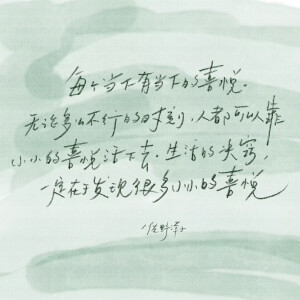 每个当下有当下的喜悦.
无论多么不行的时刻,人都可以靠
小小的喜悦活下去.生活的诀窍,
一定在于发现很多小小的喜悦
—佐野洋子